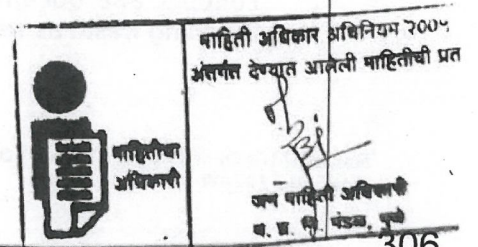 माहितीचा
अधिकारी
माहिती अधिकार अधिनियम २००५
अंतर्गत देण्यात आलेली माहितीची प्रत
जन माहिती अधिकारी
म. प्र. नि. मंडळ, पुणे
306